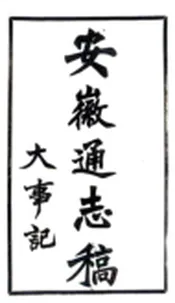 安徽通志稿
大事記